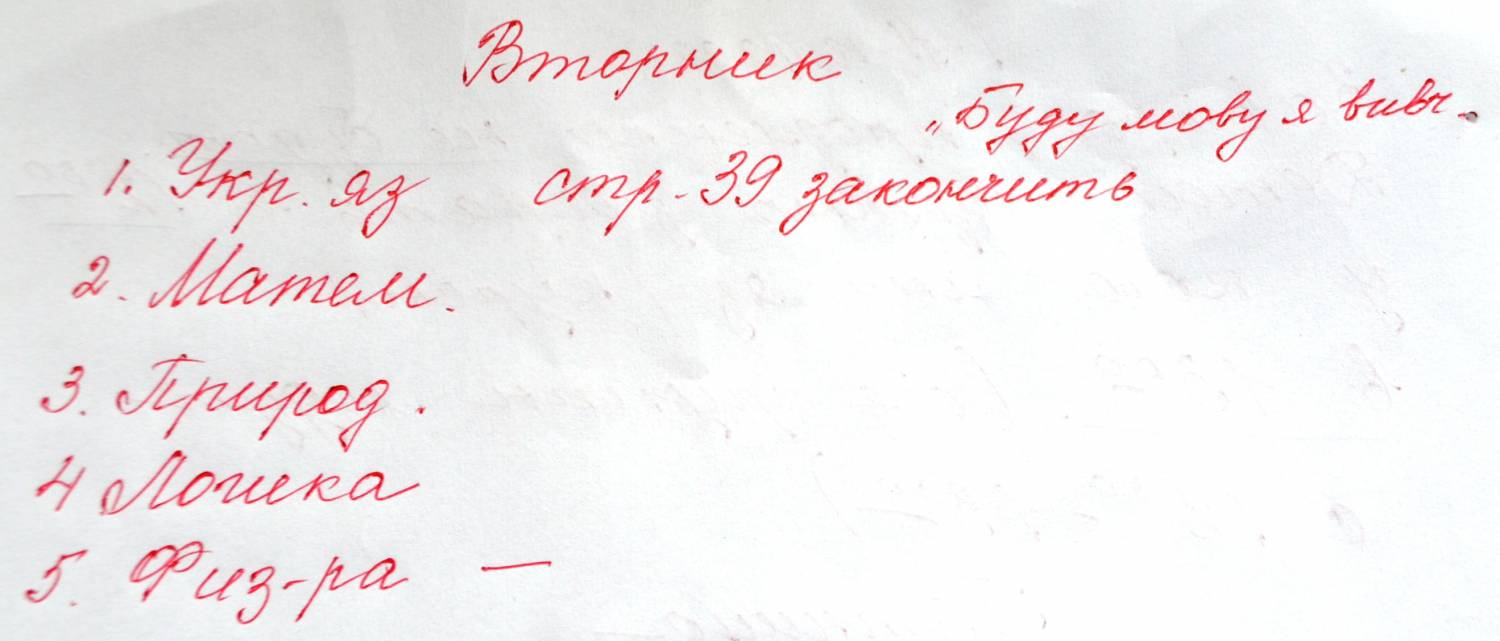 Вторник
„Буду мову я вивч.
1. Укр. яз стр. 39 закончить
2. Матем.
3. Природ.
4 Логика
5. Физ-ра —